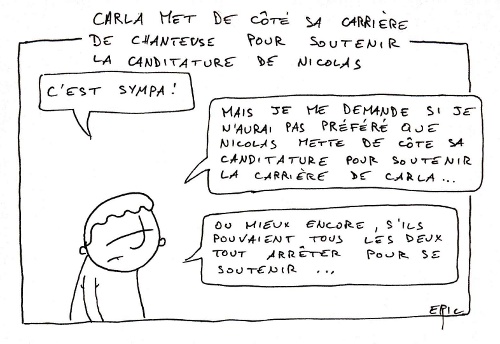 CARLA MET DE CÔTÉ SA CARRIÈRE
DE CHANTEUSE POUR SOUTENIR
LA CANDITATURE DE NICOLAS
C'EST SYMPA !
MAIS JE ME DEMANDE SI JE
N'AURAI PAS PRÉFÉRÉ QUE
NICOLAS METTE DE CÔTE SA
CANDITATURE POUR SOUTENIR
LA CARRIÈRE DE CARLA...
OU MIEUX ENCORE, S'ILS
POUVAIENT TOUS LES DEUX
TOUT ARRÊTER POUR SE
SOUTENIR ...
EPIC